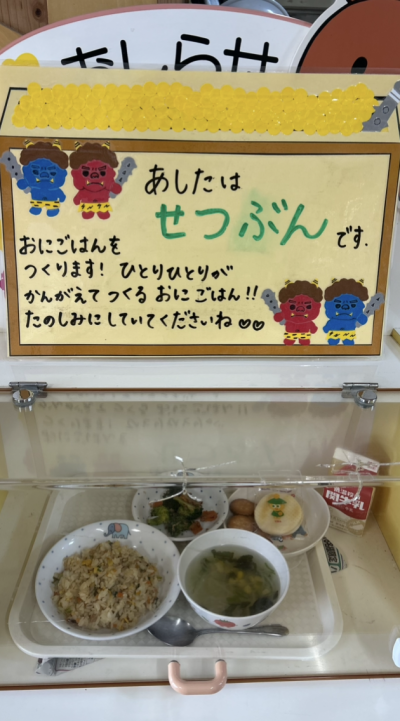 おしらせ
あしたは
せつぶん
です.
おにごはんを
つくります! ひとりひとりが
かんがえて つくる おに ごはん!!
たのしみに していて くださいね♡♡